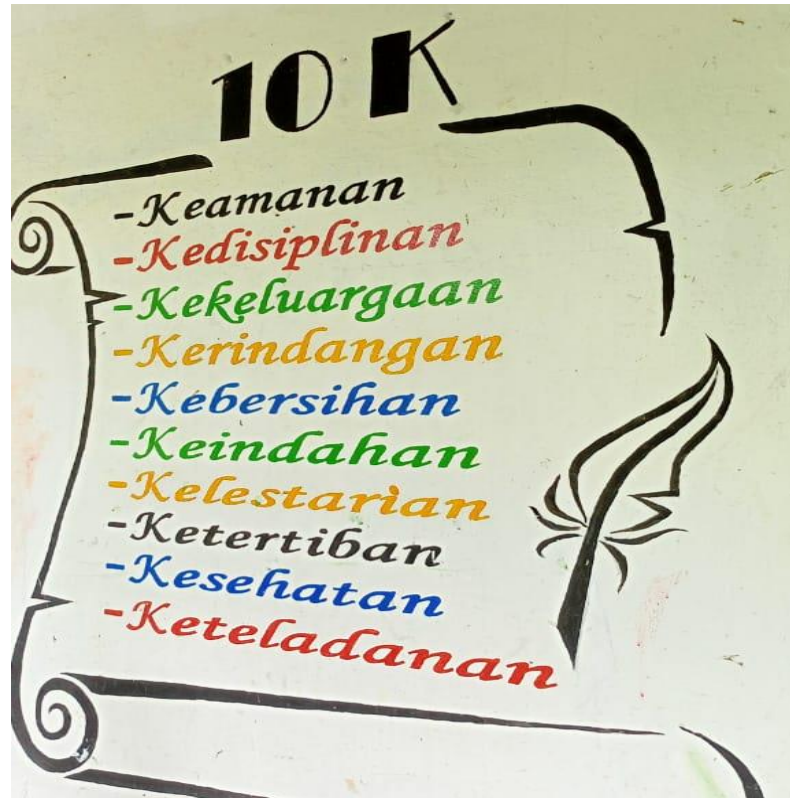 10 K
-Keamanan
-Kedisiplinan
-Kekeluargaan
-Kerindangan
-Kebersihan
-Keindahan
-Kelestarian
-Ketertiban
-Kesehatan
-Keteladanan